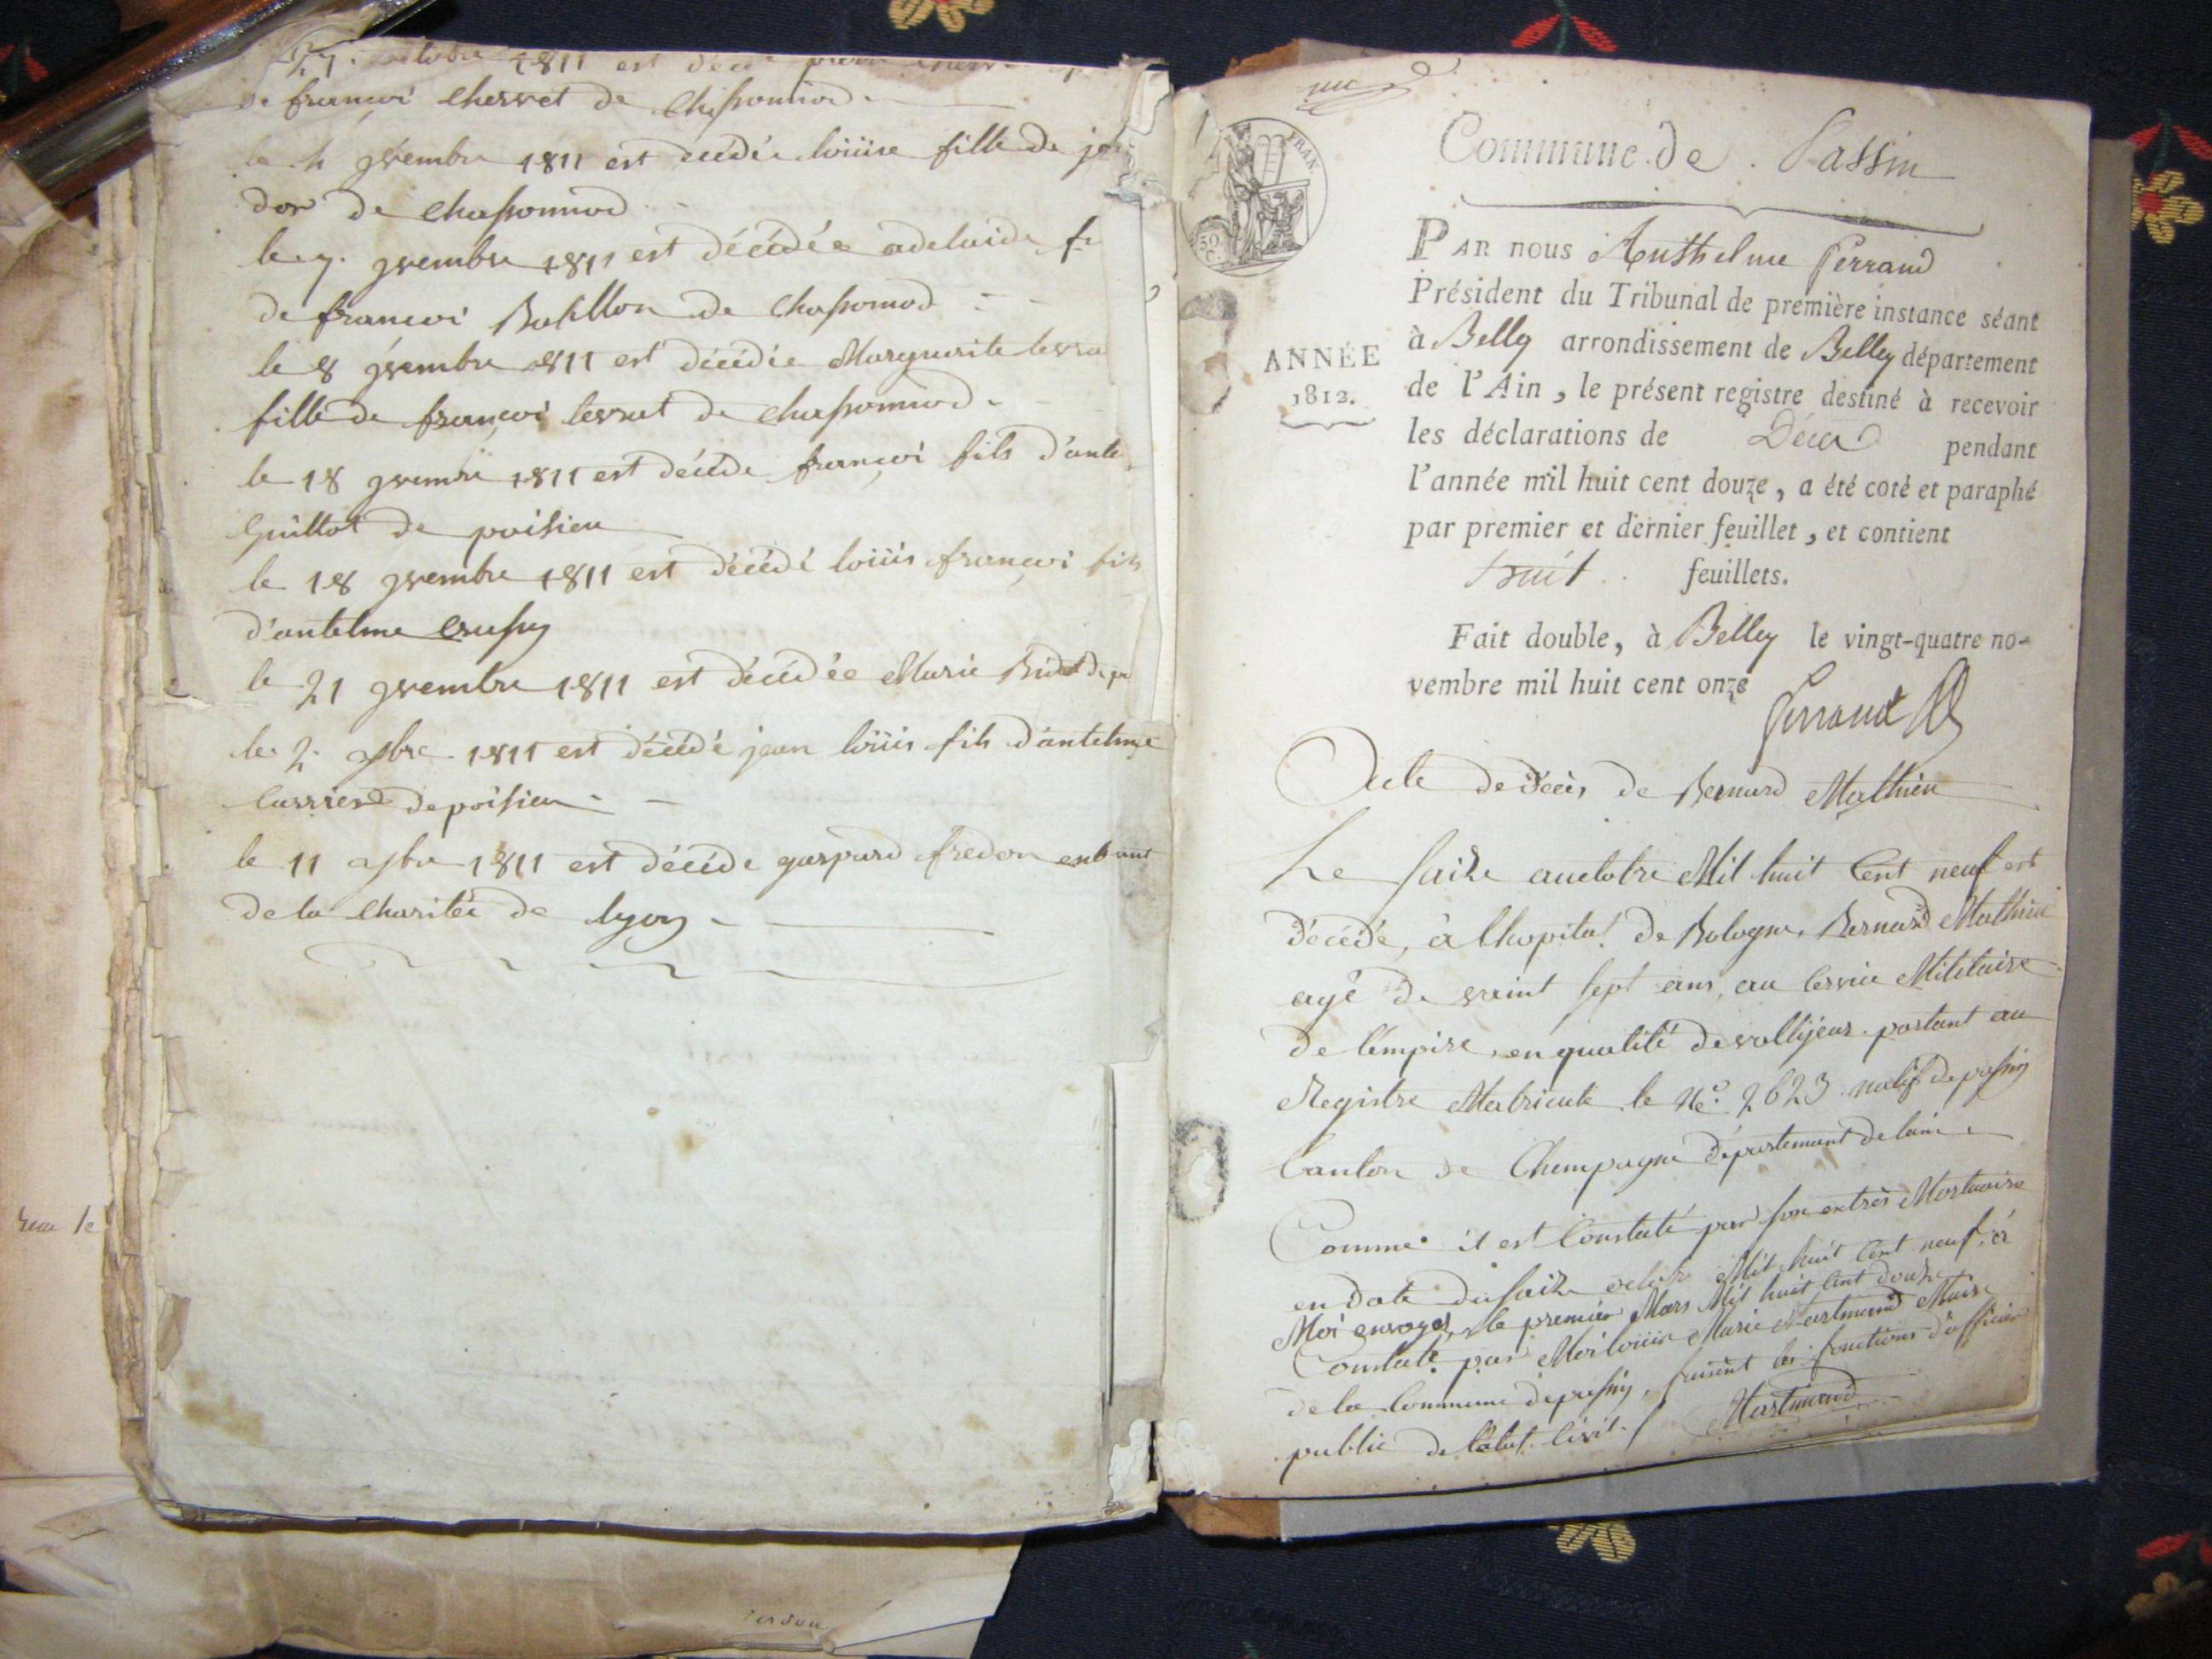 octobre 1811 est
de françoi Chervet de
le 4 9vembre 1811 est décédée loüise fille de
dor de chassonnod
le 7. 9vembre 1811 est décédée adelaide
de françoi de chassonnod
le 8 9vembre 1811 est décédée Marguerite
fille de françoi de chassonnod
le 18 9vembre 1811 est décédé françoi fils d'ante
Guillot de poisieu
le 18 9vembre 1811 est décédé loüis françoi fils
d'antelme
le 21 9vembre 1811 est décédée Marie Bidat de
le 2 1811 est décédé jean loüis fils d'antelme
de poisieu
le 11 1811 est décédé gaspard fredon enfant
de la Charitée de lyon
Commune de Passin
FRAN.
50 C.
ANNÉE
1812.
PAR nous Anthelme Ferrand
Président du Tribunal de première instance séant
à Belley arrondissement de Belley département
de l'Ain, le présent registre destiné à recevoir
les déclarations de Décès pendant
l'année mil huit cent douze, a été coté et paraphé
par premier et dernier feuillet, et contient
huit feuillets.
Fait double, à Belley le vingt-quatre no-
vembre mil huit cent onze
Ferrand
Acte de décès de Bernard Mathieu
Le saize auctobre Mil huit Cent neuf est
décédé, à lhopital de Bologne, Bernard Mathieu
agé de vaint sept ans, au Cervice Militaire
de l'empire, en qualité de voltijeur portant au
Registre Matricule le No. 2623 natif de passin
Canton de Champagne département de lain
Comme il est Constaté par son extrès Mortuaire
en date du saize octobre Mil huit Cent neuf, à
Moi envoyé, le premier Mars Mil huit Cent douze
Constaté par Moi loüis Marie Maire
de la Commune de passin, faisent les fonctions d'officier
public de l'état Civil.